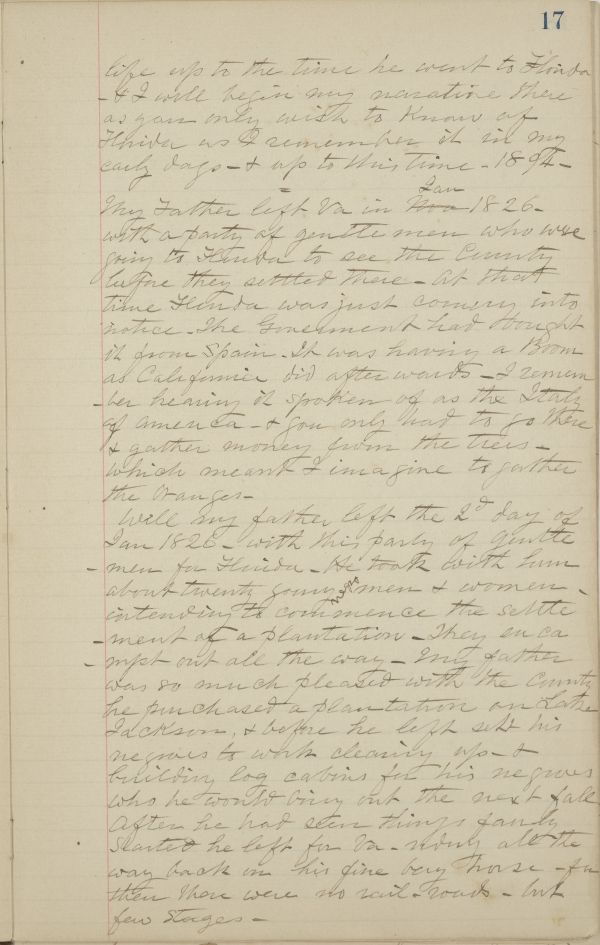 17
life up to the time he went to Florida
- & I will begin my narative there
as you only wish to know of
Florida as I remember it in my
early days - & up to this time - 18
Jan
My Father left Va in Nov 1826 -
with a party of gentlemen who were
going to Florida to see the County
before they settled there - At that
time Florida was just coming into
notice - The Goverment had bought
it from Spain - It was having a Boom
as California did afterwards - I remem
- ber hearing it spoken of as the Italy
of America - & you only had to go there
& gather money from the trees -
which meant I imagine to gather
the Oranges -
Well my father left the 2d day of
Jan 1826 - with this party of gentle
- men for Florida - He took with him
about twenty young negro men & women -
intending to commence the settle
- ment of a plantation - They en ca
- mpt out all the way - My father
was so much pleased with the County
he purchased a plantation on Lake
Jackson, & before he left set his
negroes to work clearing up - &
building log cabins for his negroes
who he would bring out the next fall
After he had seen things fairly
started he left for Va - riding all the
way back on his fine bay horse - for
then there were no rail-roads - but
few stages -